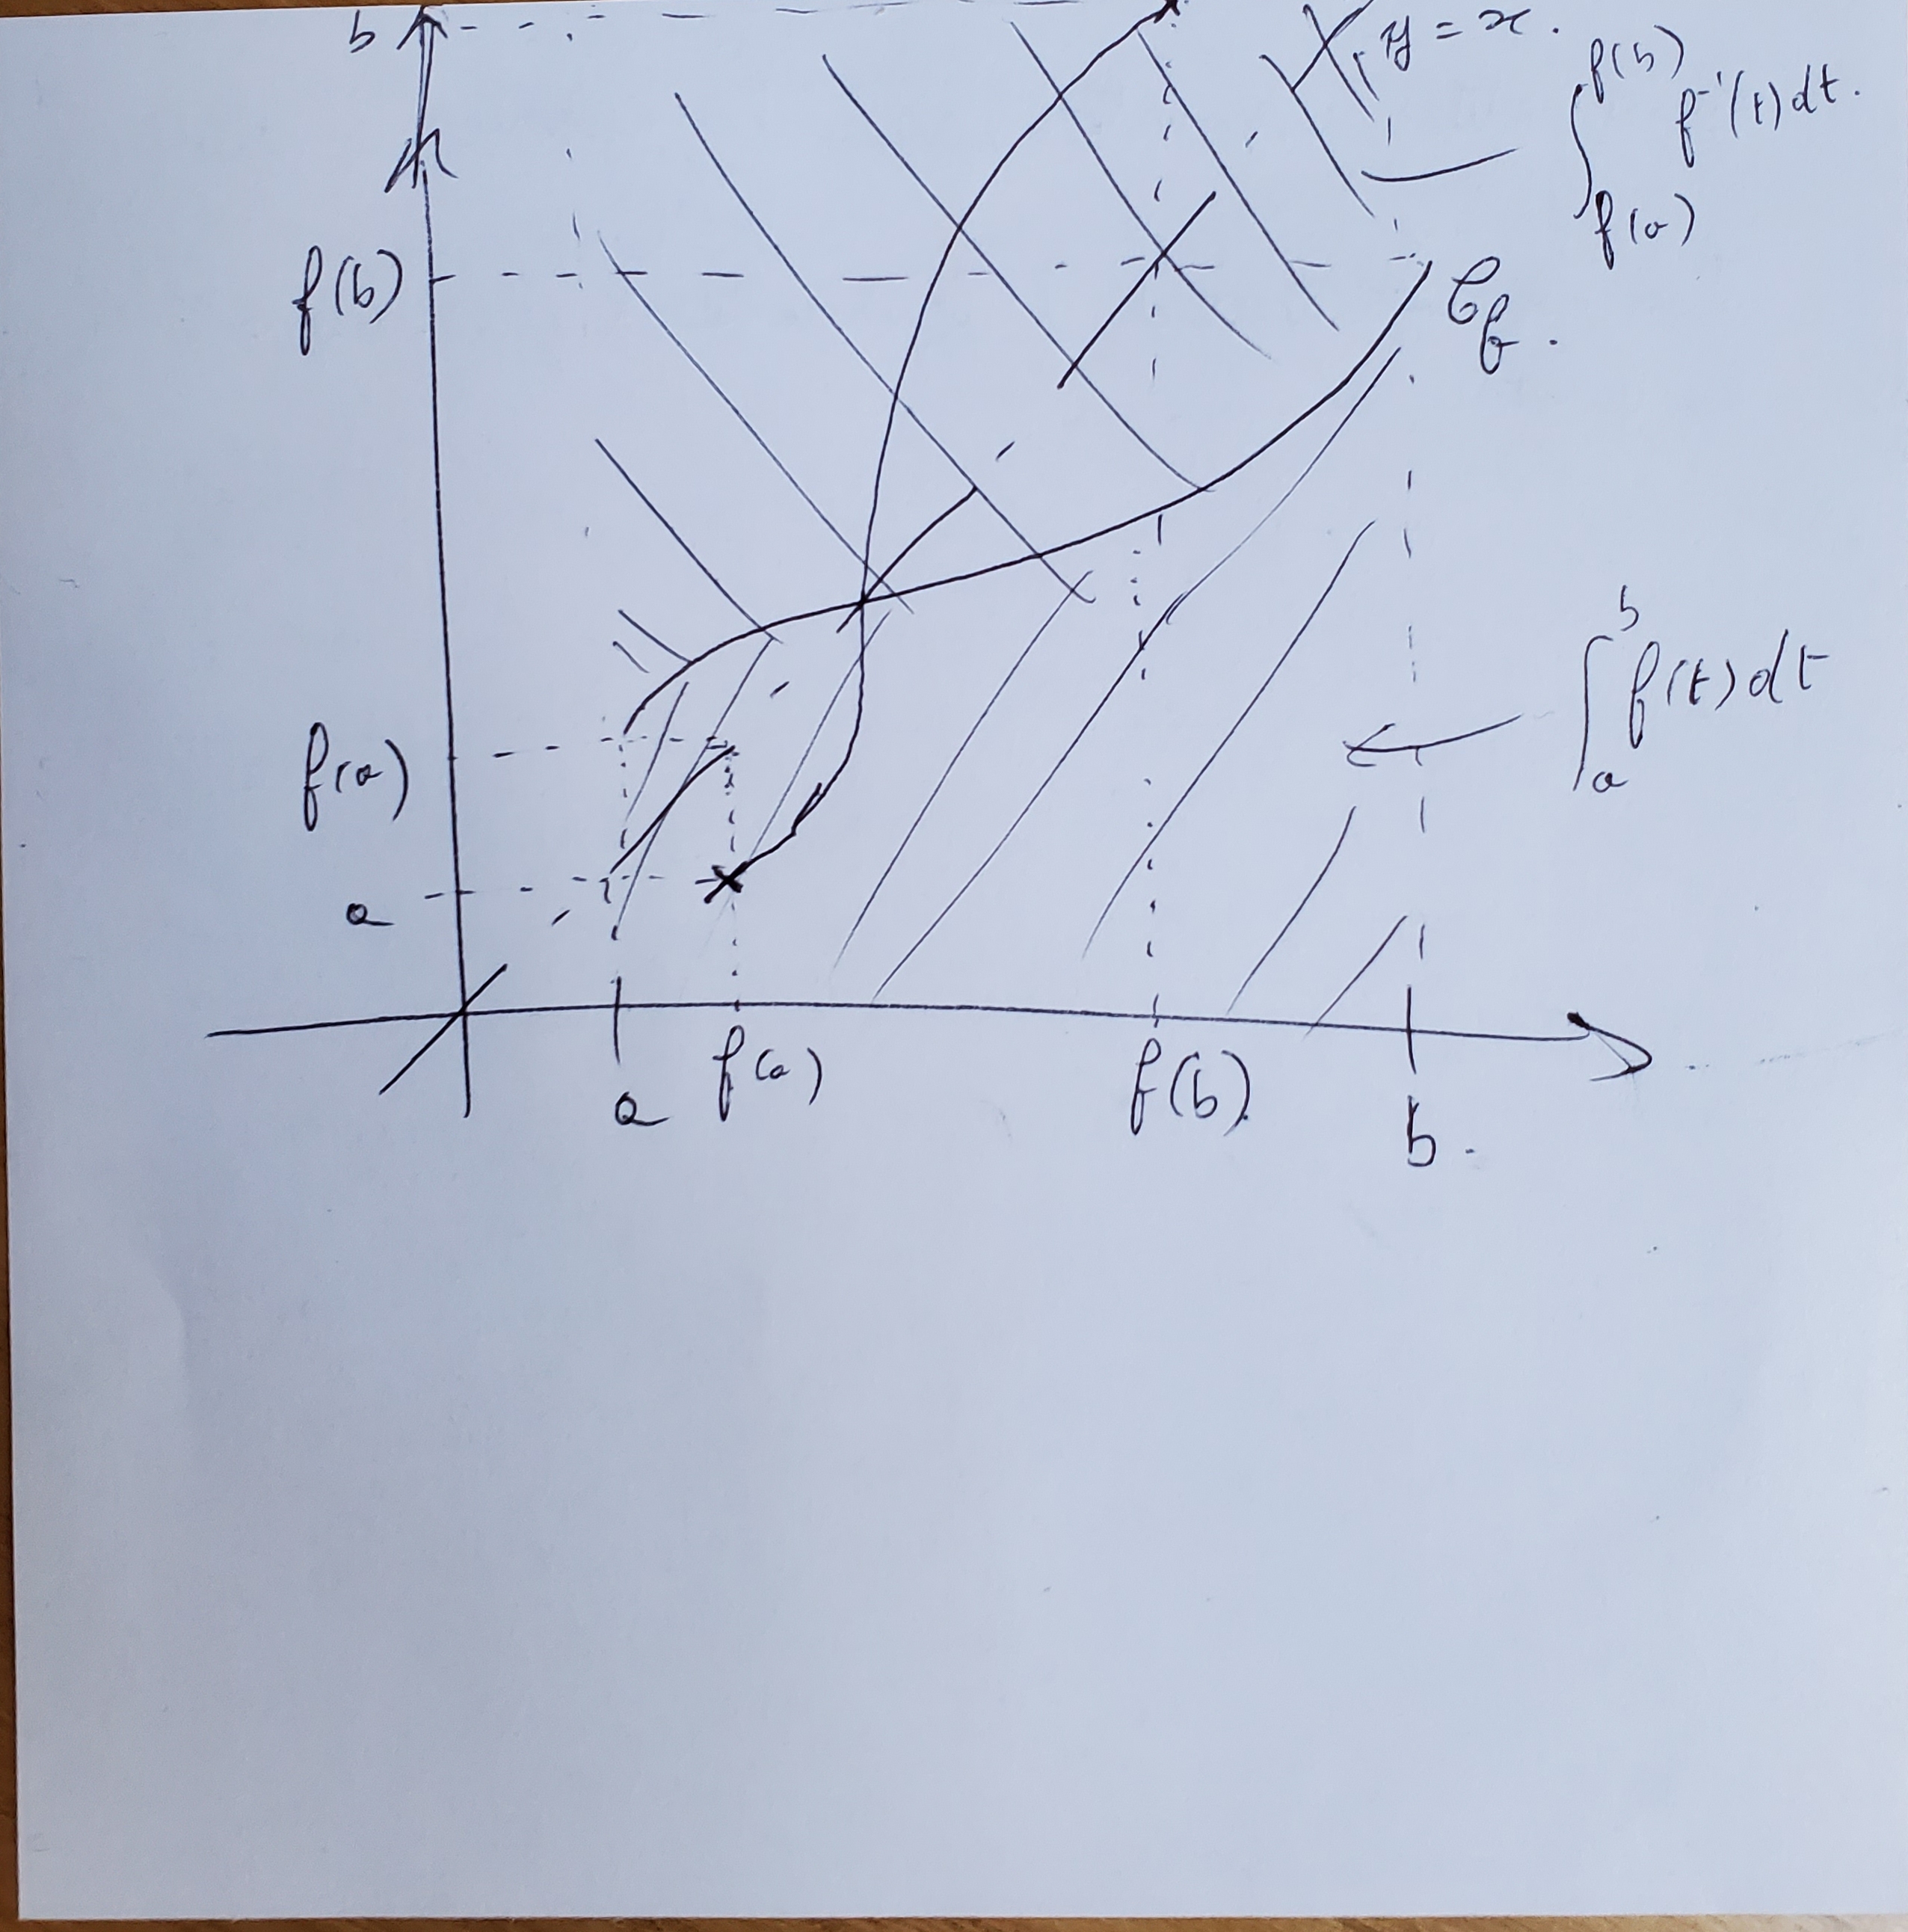 b
y = x.
∫_{f(a)}^{f(b)} f⁻¹(t) dt.
f(b)
𝒞_f.
∫_a^b f(t) dt
f(a)
a
a f(a) f(b) b.